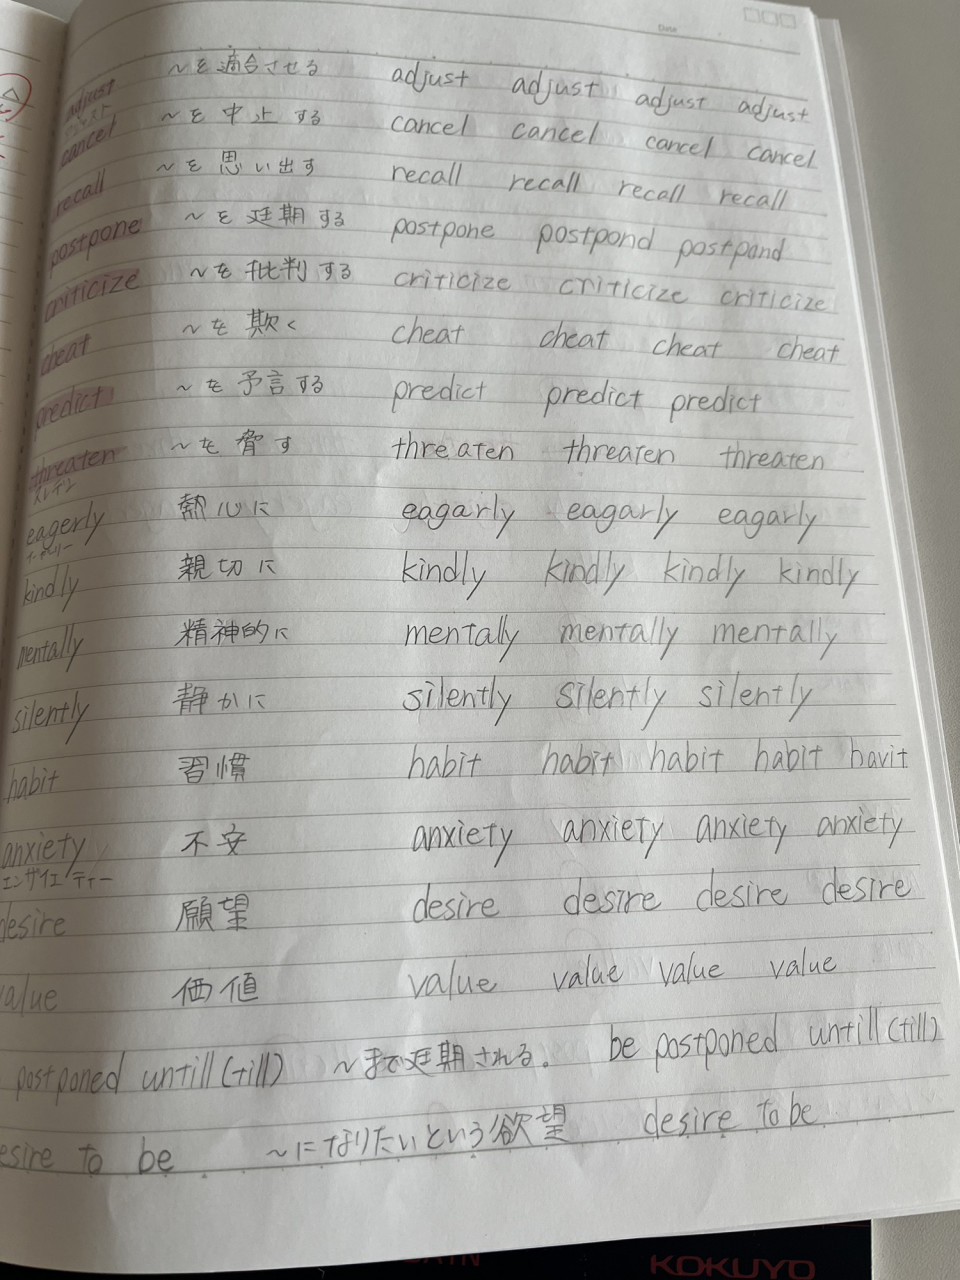 Date
adjust ～を適合させる adjust adjust adjust adjust
cancel ～を中止する cancel cancel cancel cancel
recall ～を思い出す recall recall recall recall
postpone ～を延期する postpone postpond postpond
criticize ～を批判する criticize criticize criticize
cheat ～を欺く cheat cheat cheat cheat
predict ～を予言する predict predict predict
threaten ～を脅す threaten threaten threaten
eagerly 熱心に eagarly eagarly eagarly
kindly 親切に kindly kindly kindly kindly
mentally 精神的に mentally mentally mentally
silently 静かに silently silently silently
habit 習慣 habit habit habit habit havit
anxiety 不安 anxiety anxiety anxiety anxiety
エンザイエティー
desire 願望 desire desire desire desire
value 価値 value value value value
postponed untill(till) ～まで延期される。 be postponed untill(till)
esire to be ～になりたいという欲望 desire to be
KOKUYO